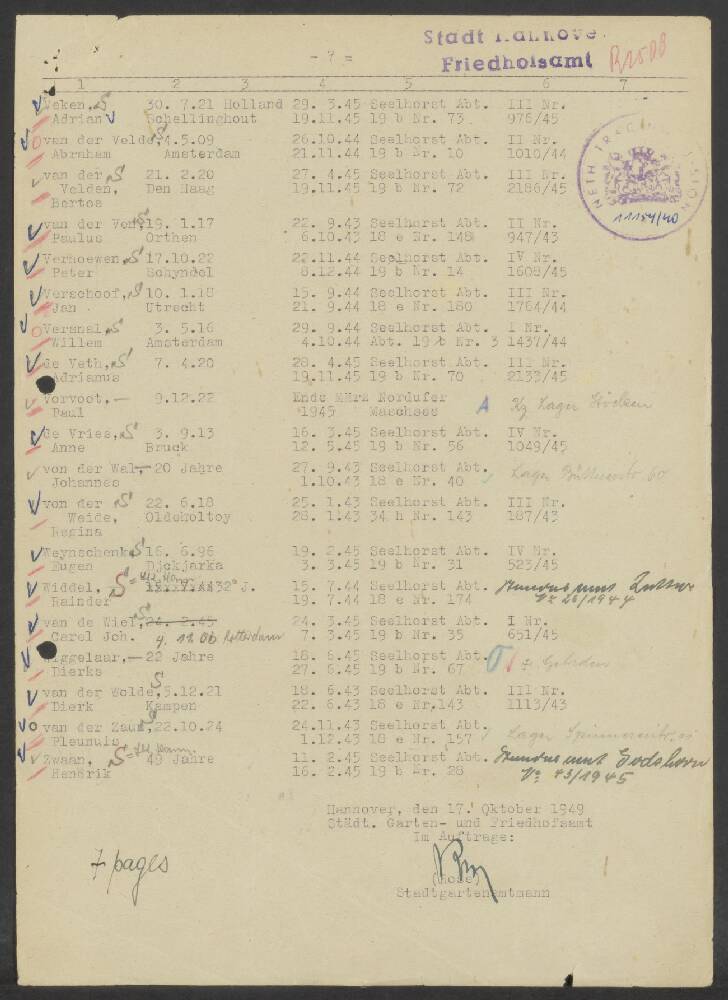 Stadt Hannover
Friedhofsamt
- 7 -
1 2 3 4 5 6 7
Veken, S 30. 7.21 Holland 29. 3.45 Seelhorst Abt. III Nr.
Adrian Schellinghout 19.11.45 19 b Nr. 73 976/45
van der Velde, 4.5.09 26.10.44 Seelhorst Abt. II Nr.
Abraham Amsterdam 21.11.44 19 b Nr. 10 1010/44
van der S 21. 2.20 27. 4.45 Seelhorst Abt. III Nr.
Velden, Den Haag 19.11.45 19 b Nr. 72 2186/45
Bertos
van der Ven, 19. 1.17 22. 9.43 Seelhorst Abt. II Nr.
Paulus Orthen 6.10.43 18 e Nr. 148 947/43
11154/40
Verhoewen, S 17.10.22 22.11.44 Seelhorst Abt. IV Nr.
Peter Schyndel 8.12.44 19 b Nr. 14 1608/45
Verschoof, S 10. 1.18 15. 9.44 Seelhorst Abt. III Nr.
Jan Utrecht 21. 9.44 18 e Nr. 180 1764/44
Versnai, S 3. 5.16 29. 9.44 Seelhorst Abt. I Nr.
Willem Amsterdam 4.10.44 Abt. 19 b Nr. 3 1437/44
de Veth, S 7. 4.20 28. 4.45 Seelhorst Abt. III Nr.
Adrianus 19.11.45 19 b Nr. 70 2133/45
Vorvoot, 9.12.22 Ende März Nordufer A Kz Lager Stöcken
Paul 1945 Maschsee
de Vries, S 3. 9.13 16. 3.45 Seelhorst Abt. IV Nr.
Anne Bruck 12. 5.45 19 b Nr. 56 1049/45
von der Wal, 20 Jahre 27. 9.43 Seelhorst Abt. Lager
Johannes 1.10.43 18 e Nr. 40
von der S 22. 6.18 25. 1.43 Seelhorst Abt. III Nr.
Weide, Oldeholtoy 28. 1.43 34 h Nr. 143 187/43
Regina
Weynschenk S 16. 6.96 19. 2.45 Seelhorst Abt. IV Nr.
Eugen Djokjarka 3. 3.45 19 b Nr. 31 523/45
Widdel, S 32 J. 15. 7.44 Seelhorst Abt. Standesamt
Rainder 19. 7.44 18 e Nr. 174 Nr 26/1944
van de Wiel, S 24. 2.45 24. 3.45 Seelhorst Abt. I Nr.
Carel Joh. 4. 12. 06 Rotterdam 7. 3.45 19 b Nr. 35 651/45
Wiggelaar, 22 Jahre 18. 6.45 Seelhorst Abt.
Dierks 27. 6.45 19 b Nr. 67
van der Wolde, 5.12.21 18. 6.43 Seelhorst Abt. III Nr.
Dierk Kampen 22. 6.43 18 e Nr, 143 1113/43
van der Zaun, 22.10.24 24.11.43 Seelhorst Abt. Lager
Pleunuis 1.12.43 18 e Nr. 157
Zwaan, S 49 Jahre 11. 2.45 Seelhorst Abt. Standesamt Godshorn
Hendrik 16. 2.45 19 b Nr. 28 Nr 43/1945
Hannover, den 17. Oktober 1949
Städt. Garten- und Friedhofsamt
Im Auftrage:
7 pages
Stadtgartenamtmann